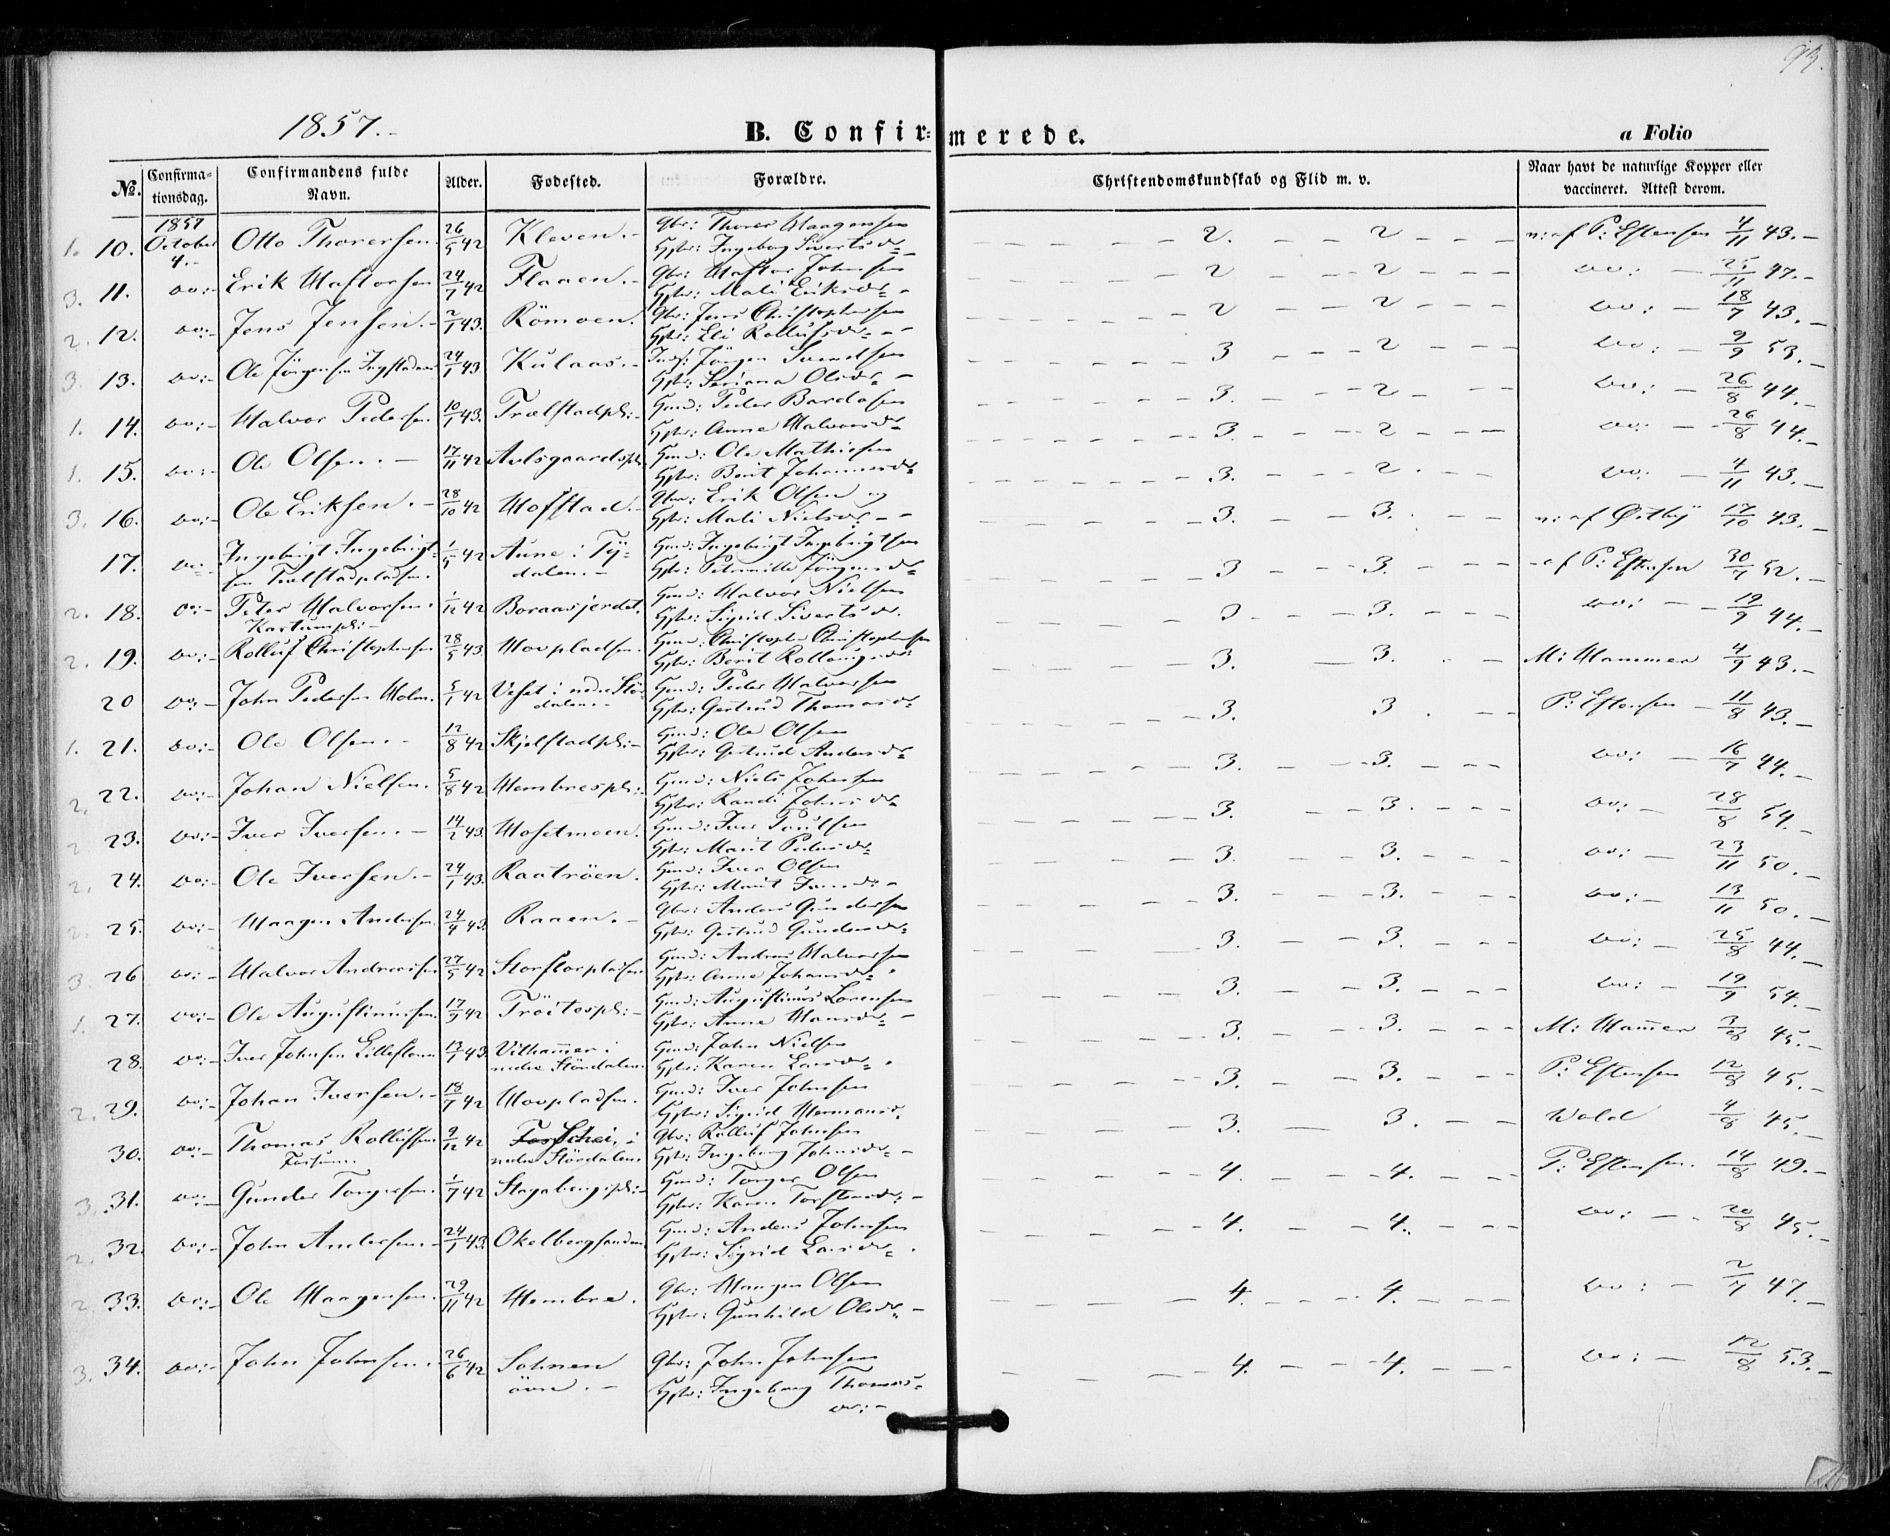 93.
1857.-
B. Confir- merede.
a Folio
No. Confirmationsdag. Confirmandens fulde Navn. Alder. Fødested. Forældre. Christendomskundskab og Flid m. v. Naar havt de naturlige Kopper eller vaccineret. Attest derom.
1. 10. 1857 October 4.- Otto Thorersen. 26/5 42 Kleven.- Gbr: Thorer Haagensen Hstr: Ingeborg Sivertsdr.- 2. 2 v: af P: Estensen 4/11 43.-
3. 11. do:- Erik Haftorsen 24/7 42 Flaaen.- Gbr: Haftor Johnsen Hstr: Mali Eriksdr.- 2 2 do: 25/11 47.-
2. 12. do:- Jens Jensen.- 2/1 43. Römoen. Gbr: Jens Christophersen Hstr: Eli Rollufsdr.- 2 2 do: 18/7 43.-
3. 13. do:- Ole Jörgensen 24/1 43 Kulaas.- Jörgen Svendsen Hstr: Seriana Olsdr.- 3 2 do: 9/9 53.-
1. 14. do:- Halvor Pedersen. 10/1 43. Trælstadpl:- Hmd: Peder Bardosen Hstr: Anne Halvorsdr. 3. 2 do: 26/8 44.-
1. 15. do:- Ole Olsen.- 17/11 42 Avlsgaardspl. Hmd: Ole Mathiesen Hstr: Berit Johannesdr. 3. 2 do: 26/8 44.-
3. 16. do:- Ole Eriksen.- 28/10 42 Hofstad.- Gbr: Erik Olsen og Hstr: Mali Nielsdr.- 3. 2 do: 4/11 43.-
17. do:- Ingebrigt Ingebrigtsen Trælstadpladsen. 1/5 42 Aune i Tydalen.- Hmd: Ingebrigt Ingebrigtsen Hstr: Peternille Jörgensdr. 3. 3. v: af Östby 17/10 43.-
2. 18. do:- Peter Halvorsen. 1/12 42 Boraasjerdet. Hmd: Halvor Nielsen Hstr: Sigrid Sivertsdr. 3 3. af P: Estensen 30/7 52.-
2. 19. do:- Rolluf Christophersen 28/5 43 Hovpladsen. Hmd: Christopher Christophersen Hstr: Berit 3 3. do: 19/9 44.-
20 do:- John Pedersen Holm. 5/1 42 i nedre Stördalen.- Hmd: Peder Halvorsen Hstr: Gertrud Thomasdr. 3. 3. M: Hammer 4/9 43.-
1. 21. do:- Ole Olsen.- 12/8 42 Skjelstadpl:- Hmd: Ole Olsen Hstr: Gertrud Andersdr. 3. 3 P: Estensen 11/8 43.-
2. 22. do:- Johan Nielsen. 5/8 42 Hembrespl:- Hmd: Niels Johnsen Hstr: Randi Johnsdr. 3. 3. do: 16/7 44.-
2 23. do:- Iver Iversen.- 14/2 43. Mosetmoen. Hmd: Iver Poulsen Hstr: Marit Pedersdr. 3. 3. do: 28/8 54.-
2. 24. do:- Ole Iversen.- 24/1 43. Raatröen. Hmd: Iver Olsen Hstr: Marit Iversdr.- 3. 3. do: 23/11 50.-
2. 25. do:- Haagen Andersen. 24/4 43. Raaen.- Gbr: Anders Gundersen Hstr: Gertrud Gundersdr. 3. 3. do: 13/11 50.-
3. 26 do:- Halvor Andreassen 27/5 42 Hmd: Andreas Halvorsen Hstr: Anne Johansdr. 3. 3. do: 25/8 44.-
1. 27. do:- Ole Augustinussen. 17/9 42 Tröitespl:- Hmd: Augustinus Lorensen Hstr: Anne Hansdr.- 3. 3. do: 19/9 54.-
28. do:- Iver Johnsen 13/1 43. i nedre Stördalen. Hmd: John Nielsen Hstr: Karen Larsdr. 3. 3. M: Hammer 45.-
2. 29. do:- Johan Iversen.- 18/7 42 Hovpladsen. Hmd: Iver Johnsen Hstr: Sigrid Hermansdr. 3. 3. P: Estensen 12/8 45.-
30. do:- Thomas Rollufsen Fossum. 9/12 42 i nedre Stördalen. Gbr: Rolluf Johnsen Hstr: Ingeborg Johnsdr.- 3. 3. Wold 4/8 45.-
3. 31. do:- Gunder Torgersen. 1/7 42 Stageberspl:- Hmd: Torger Olsen Hstr: Karen Torstensdr.- 4. 4. P: Estensen. 14/8 49.-
2. 32. do:- John Andersen.- 24/1 43. Okelbergsanden Hmd: Anders Johnsen Hstr: Sigrid Larsdr. 4. 4. do: 20/8 45.-
2. 33. do:- Ole Haagensen. 29/11 42 Hembre. Gbr: Haagen Olsen Hstr: Gunhild Olsdr.- 4. 4. do: 2/7 47.-
3. 34. do:- John Johnsen. 26/6 42 övre.- Gbr: John Johnsen Hstr: Ingeborg Thomasdr:- 4. 4. do: 12/8 53.-